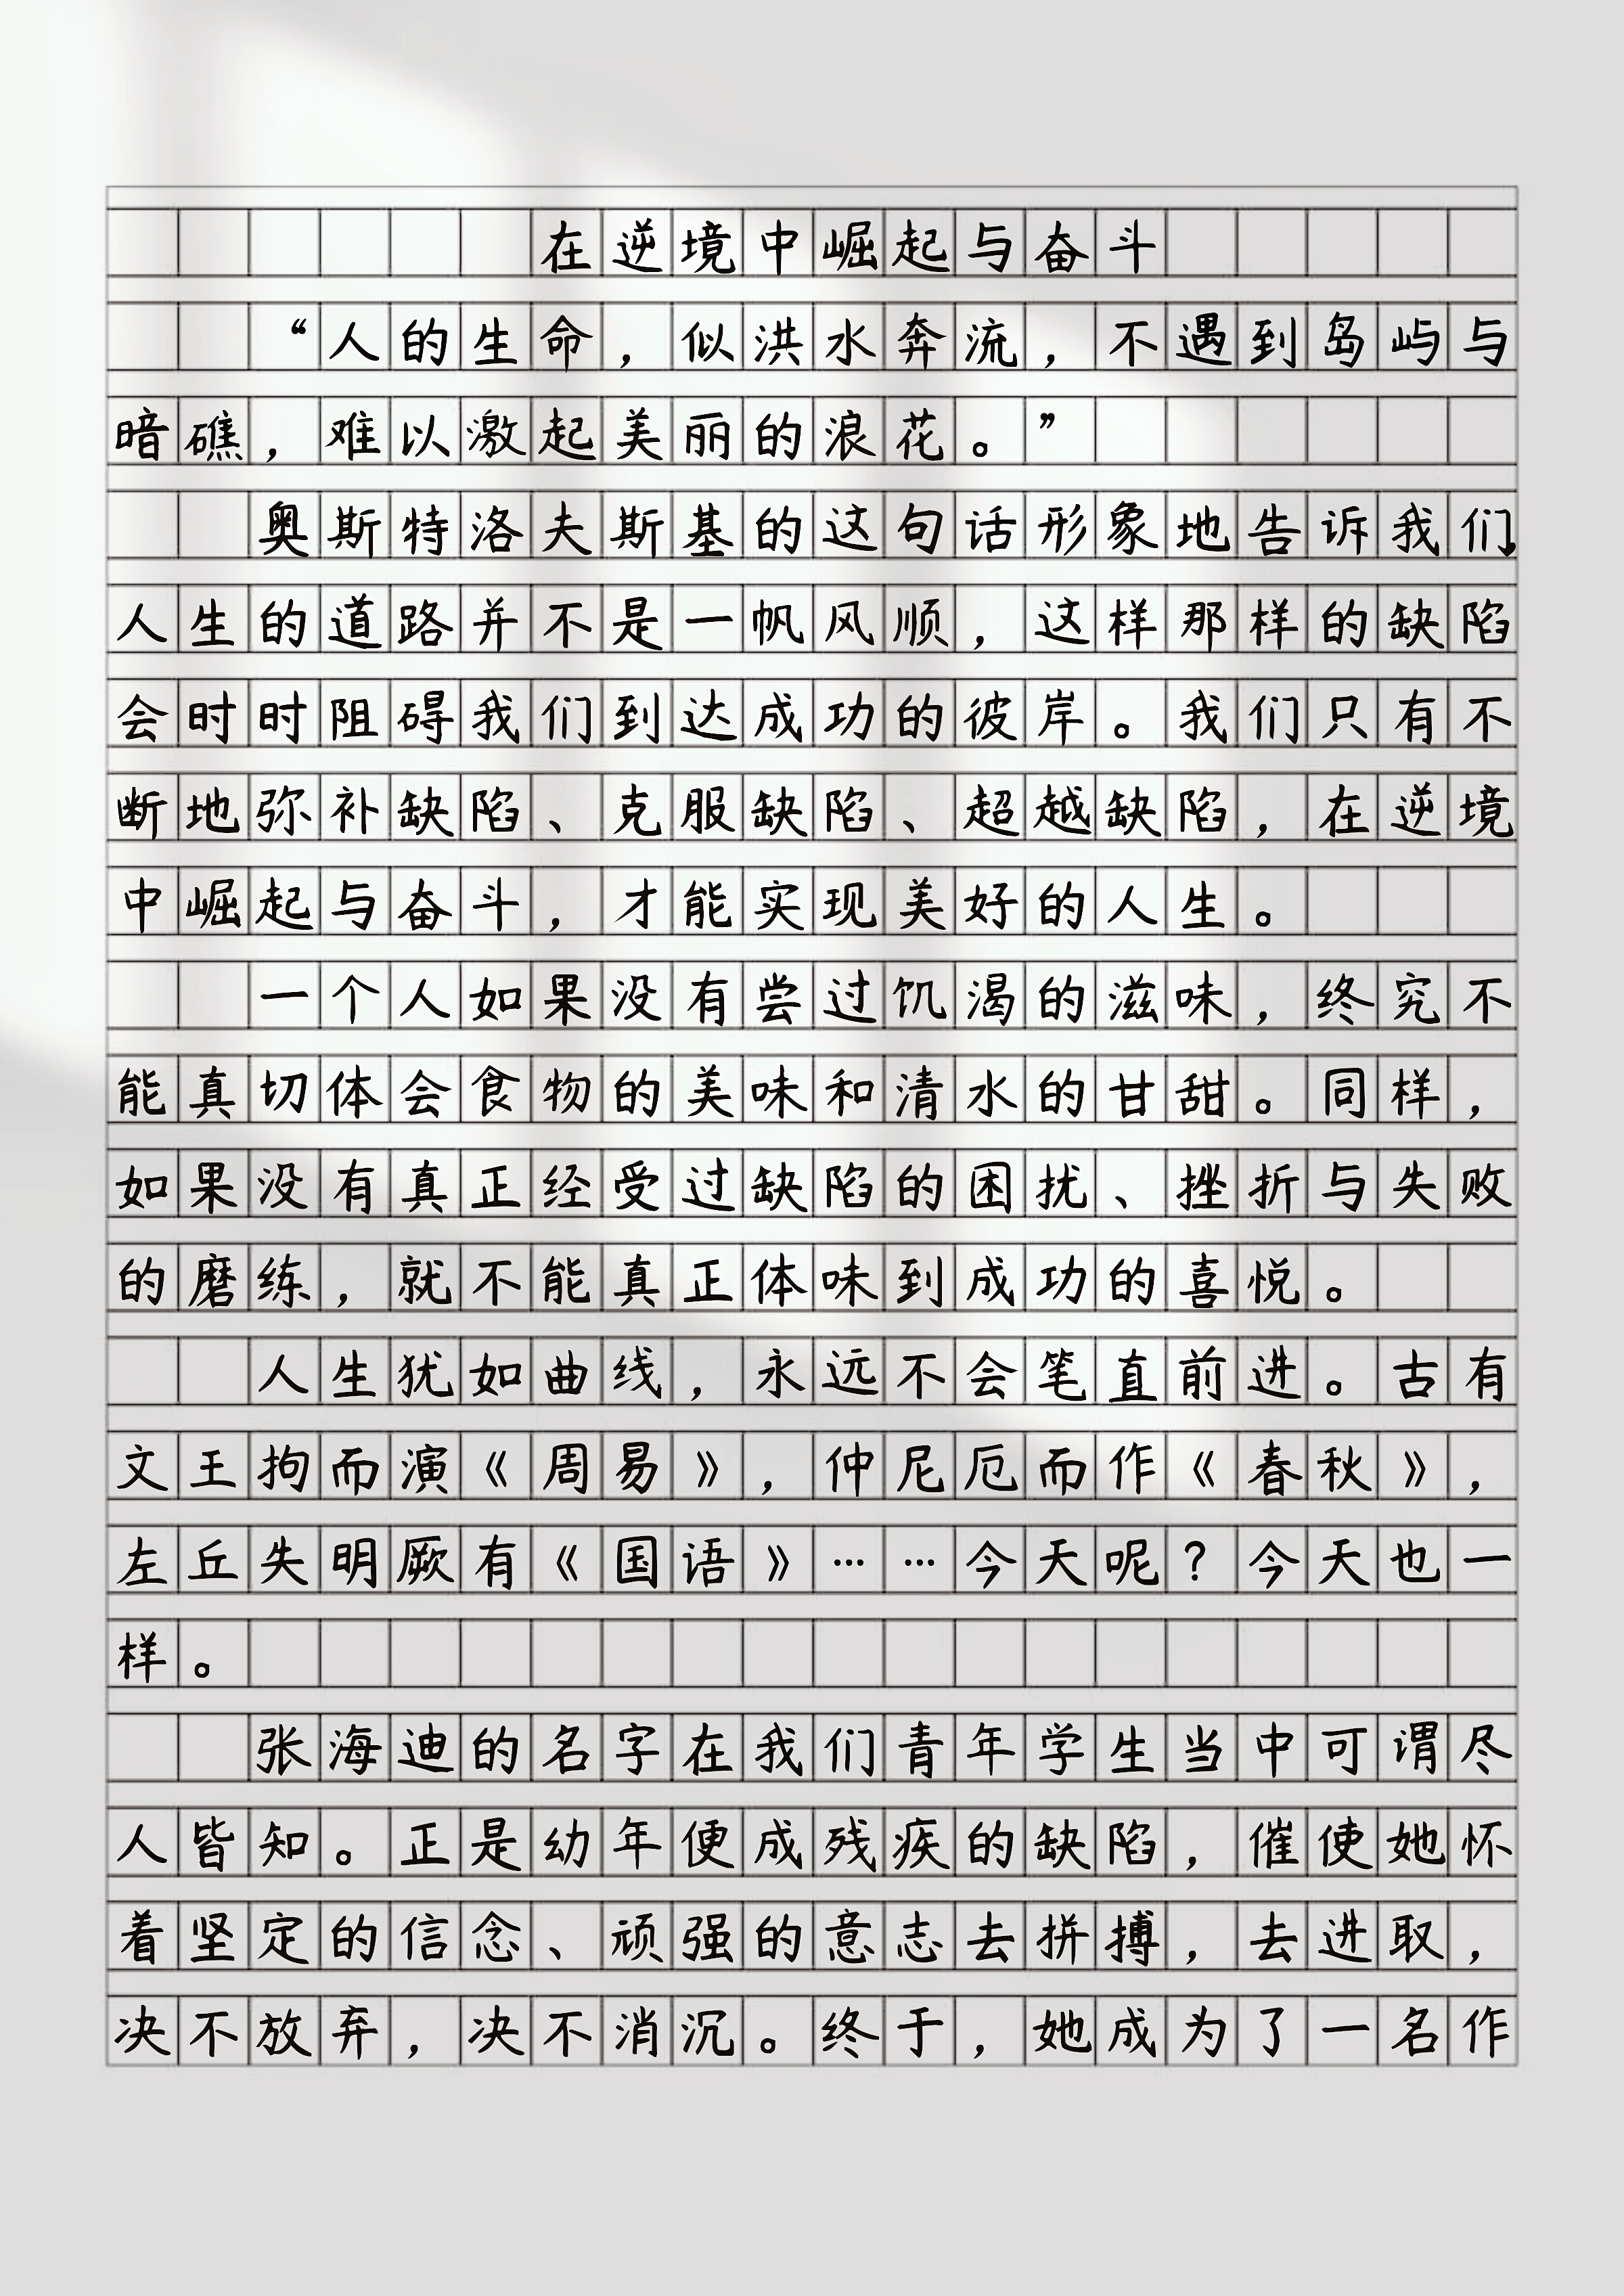 在逆境中崛起与奋斗
“人的生命，似洪水奔流，不遇到岛屿与
暗礁，难以激起美丽的浪花。”
奥斯特洛夫斯基的这句话形象地告诉我们，
人生的道路并不是一帆风顺，这样那样的缺陷
会时时阻碍我们到达成功的彼岸。我们只有不
断地弥补缺陷、克服缺陷、超越缺陷，在逆境
中崛起与奋斗，才能实现美好的人生。
一个人如果没有尝过饥渴的滋味，终究不
能真切体会食物的美味和清水的甘甜。同样，
如果没有真正经受过缺陷的困扰、挫折与失败
的磨练，就不能真正体味到成功的喜悦。
人生犹如曲线，永远不会笔直前进。古有
文王拘而演《周易》，仲尼厄而作《春秋》，
左丘失明厥有《国语》……今天呢？今天也一
样。
张海迪的名字在我们青年学生当中可谓尽
人皆知。正是幼年便成残疾的缺陷，催使她怀
着坚定的信念、顽强的意志去拼搏，去进取，
决不放弃，决不消沉。终于，她成为了一名作